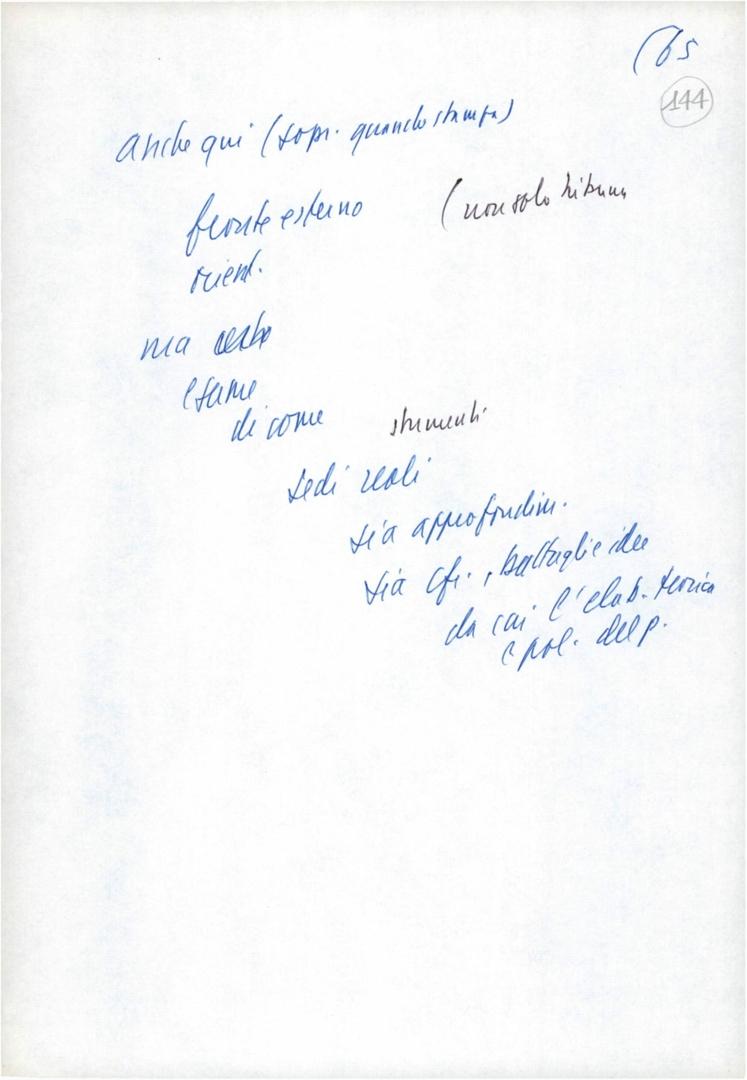 (65
144
anche qui (sopr. quando stampa)
fronte esterno (non solo tribuna
orient.
ma anche
esame
di come strumenti
sedi reali
sia approfondim.
sia cfr., battaglie idee
da cui l'elab. teorica
e pol. del p.